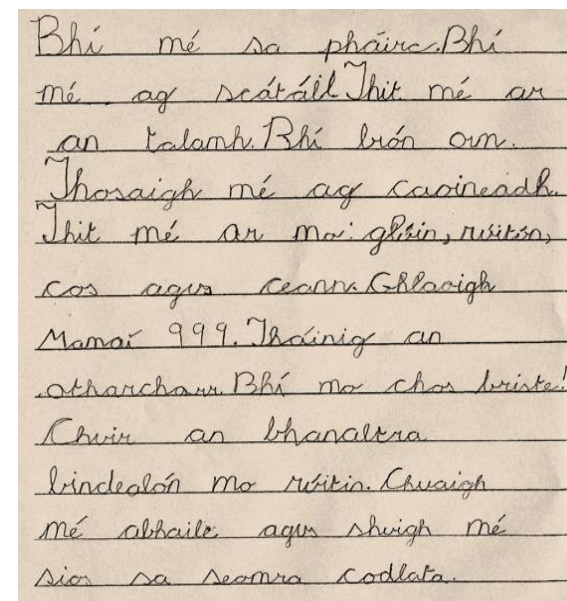 Bhí mé sa pháirc. Bhí
mé ag scátáil Thit mé ar
an talamh. Bhí brón orm.
Thosaigh mé ag caoineadh.
Thit mé ar mo: glúin, rúitín,
cos agus ceann. Ghlaoigh
Mamaí 999. Tháinig an
otharcharr. Bhí mo chos briste!
Chuir an bhanaltra
bindealán mo rúitín. Chuaigh
mé abhaile agus shuigh mé
síos sa seomra codlata.